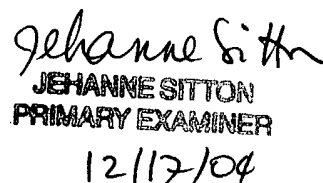 Jehanne Sitton
JEHANNE SITTON
PRIMARY EXAMINER
12/17/04